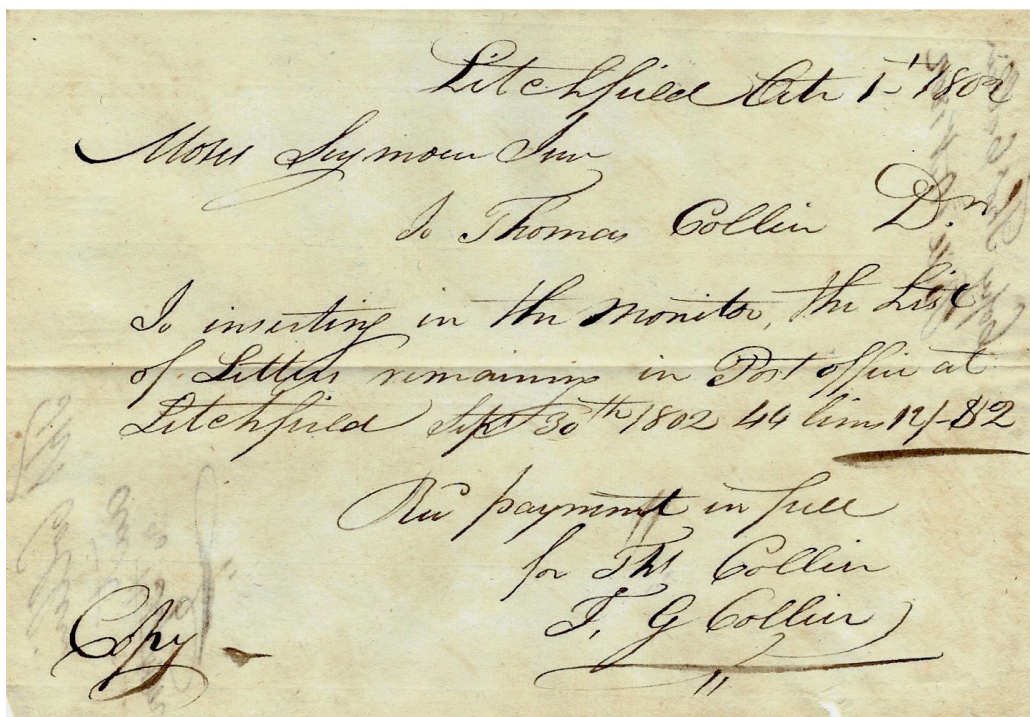 Litchfield Octr 1st 1802
Moses Seymour Junr
To Thomas Collier Dr.
To inserting in the Monitor, the List
of Letters remaining in Post office at
Litchfield Sept 30th 1802 44 lines 12/- $2
Recd payment in full
for Ths Collier
T, G Collier
Copy